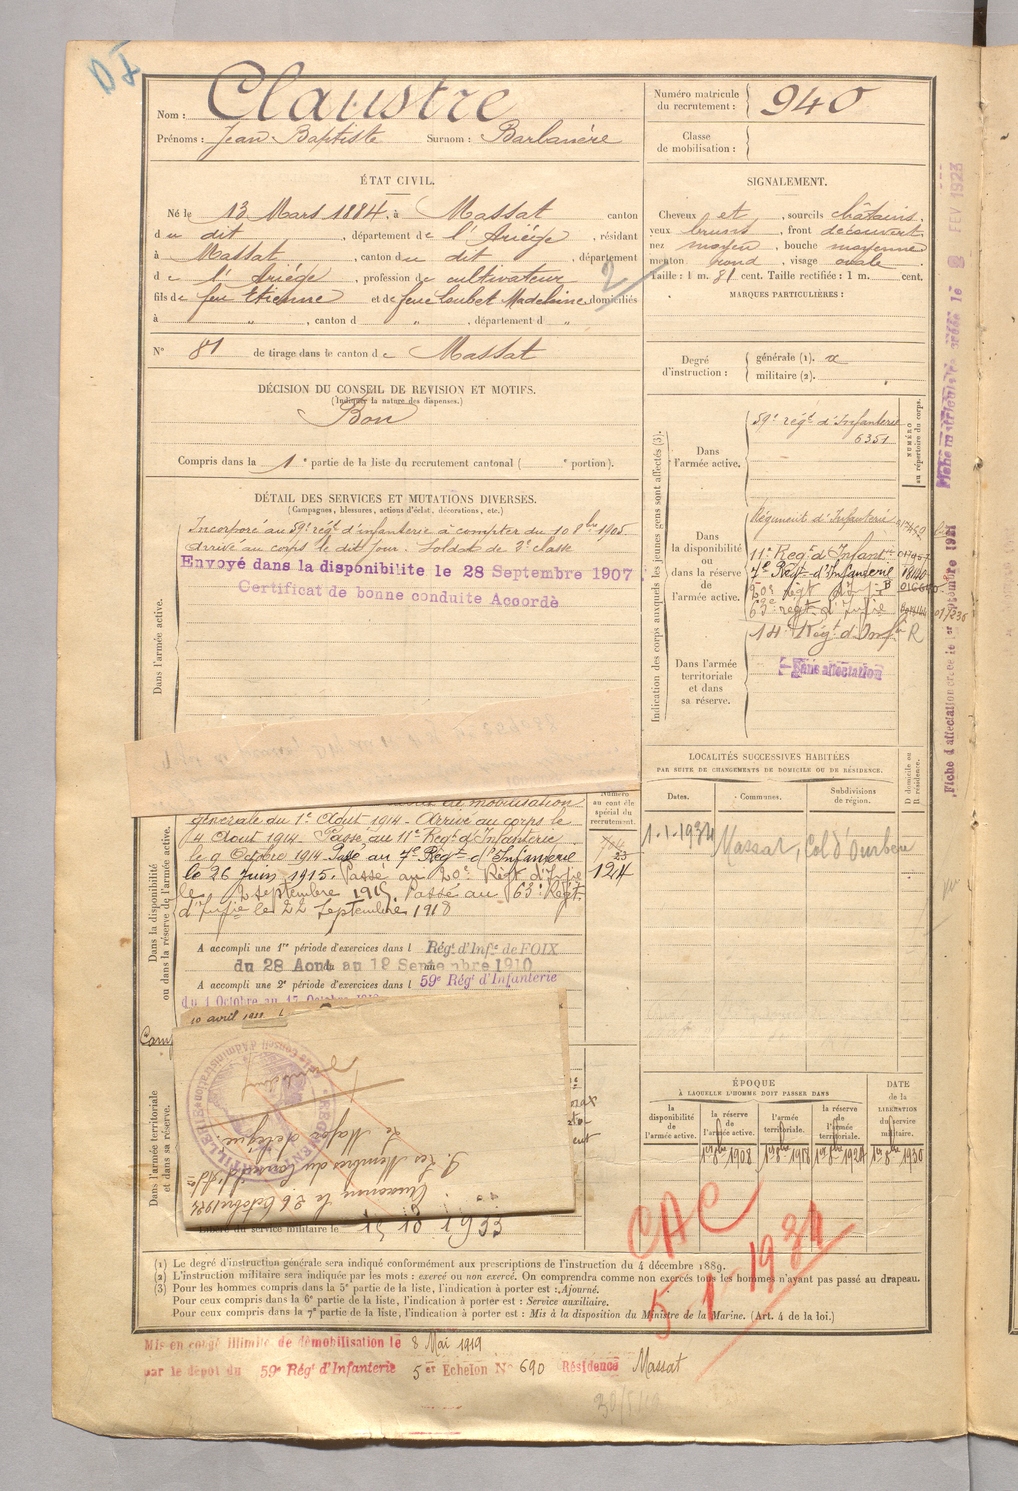 Nom : Claustre
Prénoms : Jean Baptiste Surnom : Barbanère
Numéro matricule du recrutement : 940
Classe de mobilisation :
ÉTAT CIVIL.
Né le 13 Mars 1884, à Massat canton
d u dit , département de l'Ariége , résidant
à Massat , canton du dit , département
d e l'Ariége , profession de cultivateur
fils de feu Etienne et de feue Loubet Madeleine domiciliés
à " , canton d " , département d "
N° 81 de tirage dans le canton d e Massat
SIGNALEMENT.
Cheveux et , sourcils châtains
yeux bruns , front découvert
nez moyen , bouche moyenne
menton rond , visage ovale
Taille : 1 m. 81 cent. Taille rectifiée : 1 m. cent.
MARQUES PARTICULIÈRES :
Degré d'instruction :
générale (1).
militaire (2).
DÉCISION DU CONSEIL DE REVISION ET MOTIFS.
(Indiquer la nature des dispenses.)
Bon
Compris dans la 1e partie de la liste du recrutement cantonal ( e portion).
DÉTAIL DES SERVICES ET MUTATIONS DIVERSES.
(Campagnes, blessures, actions d'éclat, décorations, etc.)
Dans l'armée active.
Incorporé au 59e régt d'infanterie à compter du 10 8bre 1905.
Arrivé au corps le dit jour. Soldat de 2e classe
Envoyé dans la disponibilite le 28 Septembre 1907
Certificat de bonne conduite Accordè
Indication des corps auxquels les jeunes gens sont affectés (3).
NUMÉRO au répertoire du corps.
Dans l'armée active.
59e régt d'Infanterie
6351
Dans la disponibilité ou dans la réserve de l'armée active.
Régiment d'Infanterie
11e Regt d'Infantie
7e Régt d'Infanterie
20e régt d'Infie
63e régt d'Infie
14e Régt d'Infie R
Dans l'armée territoriale et dans sa réserve.
Sans affectation
Fiche d'affectation créée le 1er Septembre 1921
FEV 1923
LOCALITÉS SUCCESSIVES HABITÉES
PAR SUITE DE CHANGEMENTS DE DOMICILE OU DE RÉSIDENCE.
Dates. Communes. Subdivisions de région. D domicile ou R résidence.
1-1-1934 Massat, Col d'
Dans la disponibilité ou dans la réserve de l'armée active.
de mobilisation
générale du 1er Aout 1914 - Arrivé au corps le
4 Aout 1914. Passé au 11e Régt d'Infanterie
le 9 Octobre 1914 Passé au 7e Régt d'Infanterie
le 26 Juin 1915. Passé au 20e Régt d'Infie
le 2 septembre 1915. Passé au 63e Régt
d'Infie le 22 Septembre 1918
Numéro au contrôle spécial du recrutement.
1214
A accompli une 1re période d'exercices dans l Régt d'Infie de FOIX
du 28 Aout au 19 Septembre 1910
A accompli une 2e période d'exercices dans l 59e Régt d'Infanterie
Camp
10 avril
Dans l'armée territoriale et dans sa réserve.
Les Membres du Conseil d'Adon
le 26 Octobre 1924
Le Major délégué
Libéré du service militaire le 15 10 1933
ÉPOQUE
À LAQUELLE L'HOMME DOIT PASSER DANS
la disponibilité de l'armée active.
la réserve de l'armée active.
l'armée territoriale.
la réserve de l'armée territoriale.
DATE de la LIBÉRATION du service militaire.
1er 8bre 1908 1er 8bre 1918 1er 8bre 1924 1er 8bre 1930
CAC
5 1 1934
(1) Le degré d'instruction générale sera indiqué conformément aux prescriptions de l'instruction du 4 décembre 1889.
(2) L'instruction militaire sera indiquée par les mots : exercé ou non exercé. On comprendra comme non exercés tous les hommes n'ayant pas passé au drapeau.
(3) Pour les hommes compris dans la 5e partie de la liste, l'indication à porter est : Ajourné.
Pour ceux compris dans la 6e partie de la liste, l'indication à porter est : Service auxiliaire.
Pour ceux compris dans la 7e partie de la liste, l'indication à porter est : Mis à la disposition du Ministre de la Marine. (Art. 4 de la loi.)
Mis en congé illimité de démobilisation le 8 Mai 1919
par le dépot du 59e Régt d'Infanterie 5er Echelon N° 690 Résidence Massat